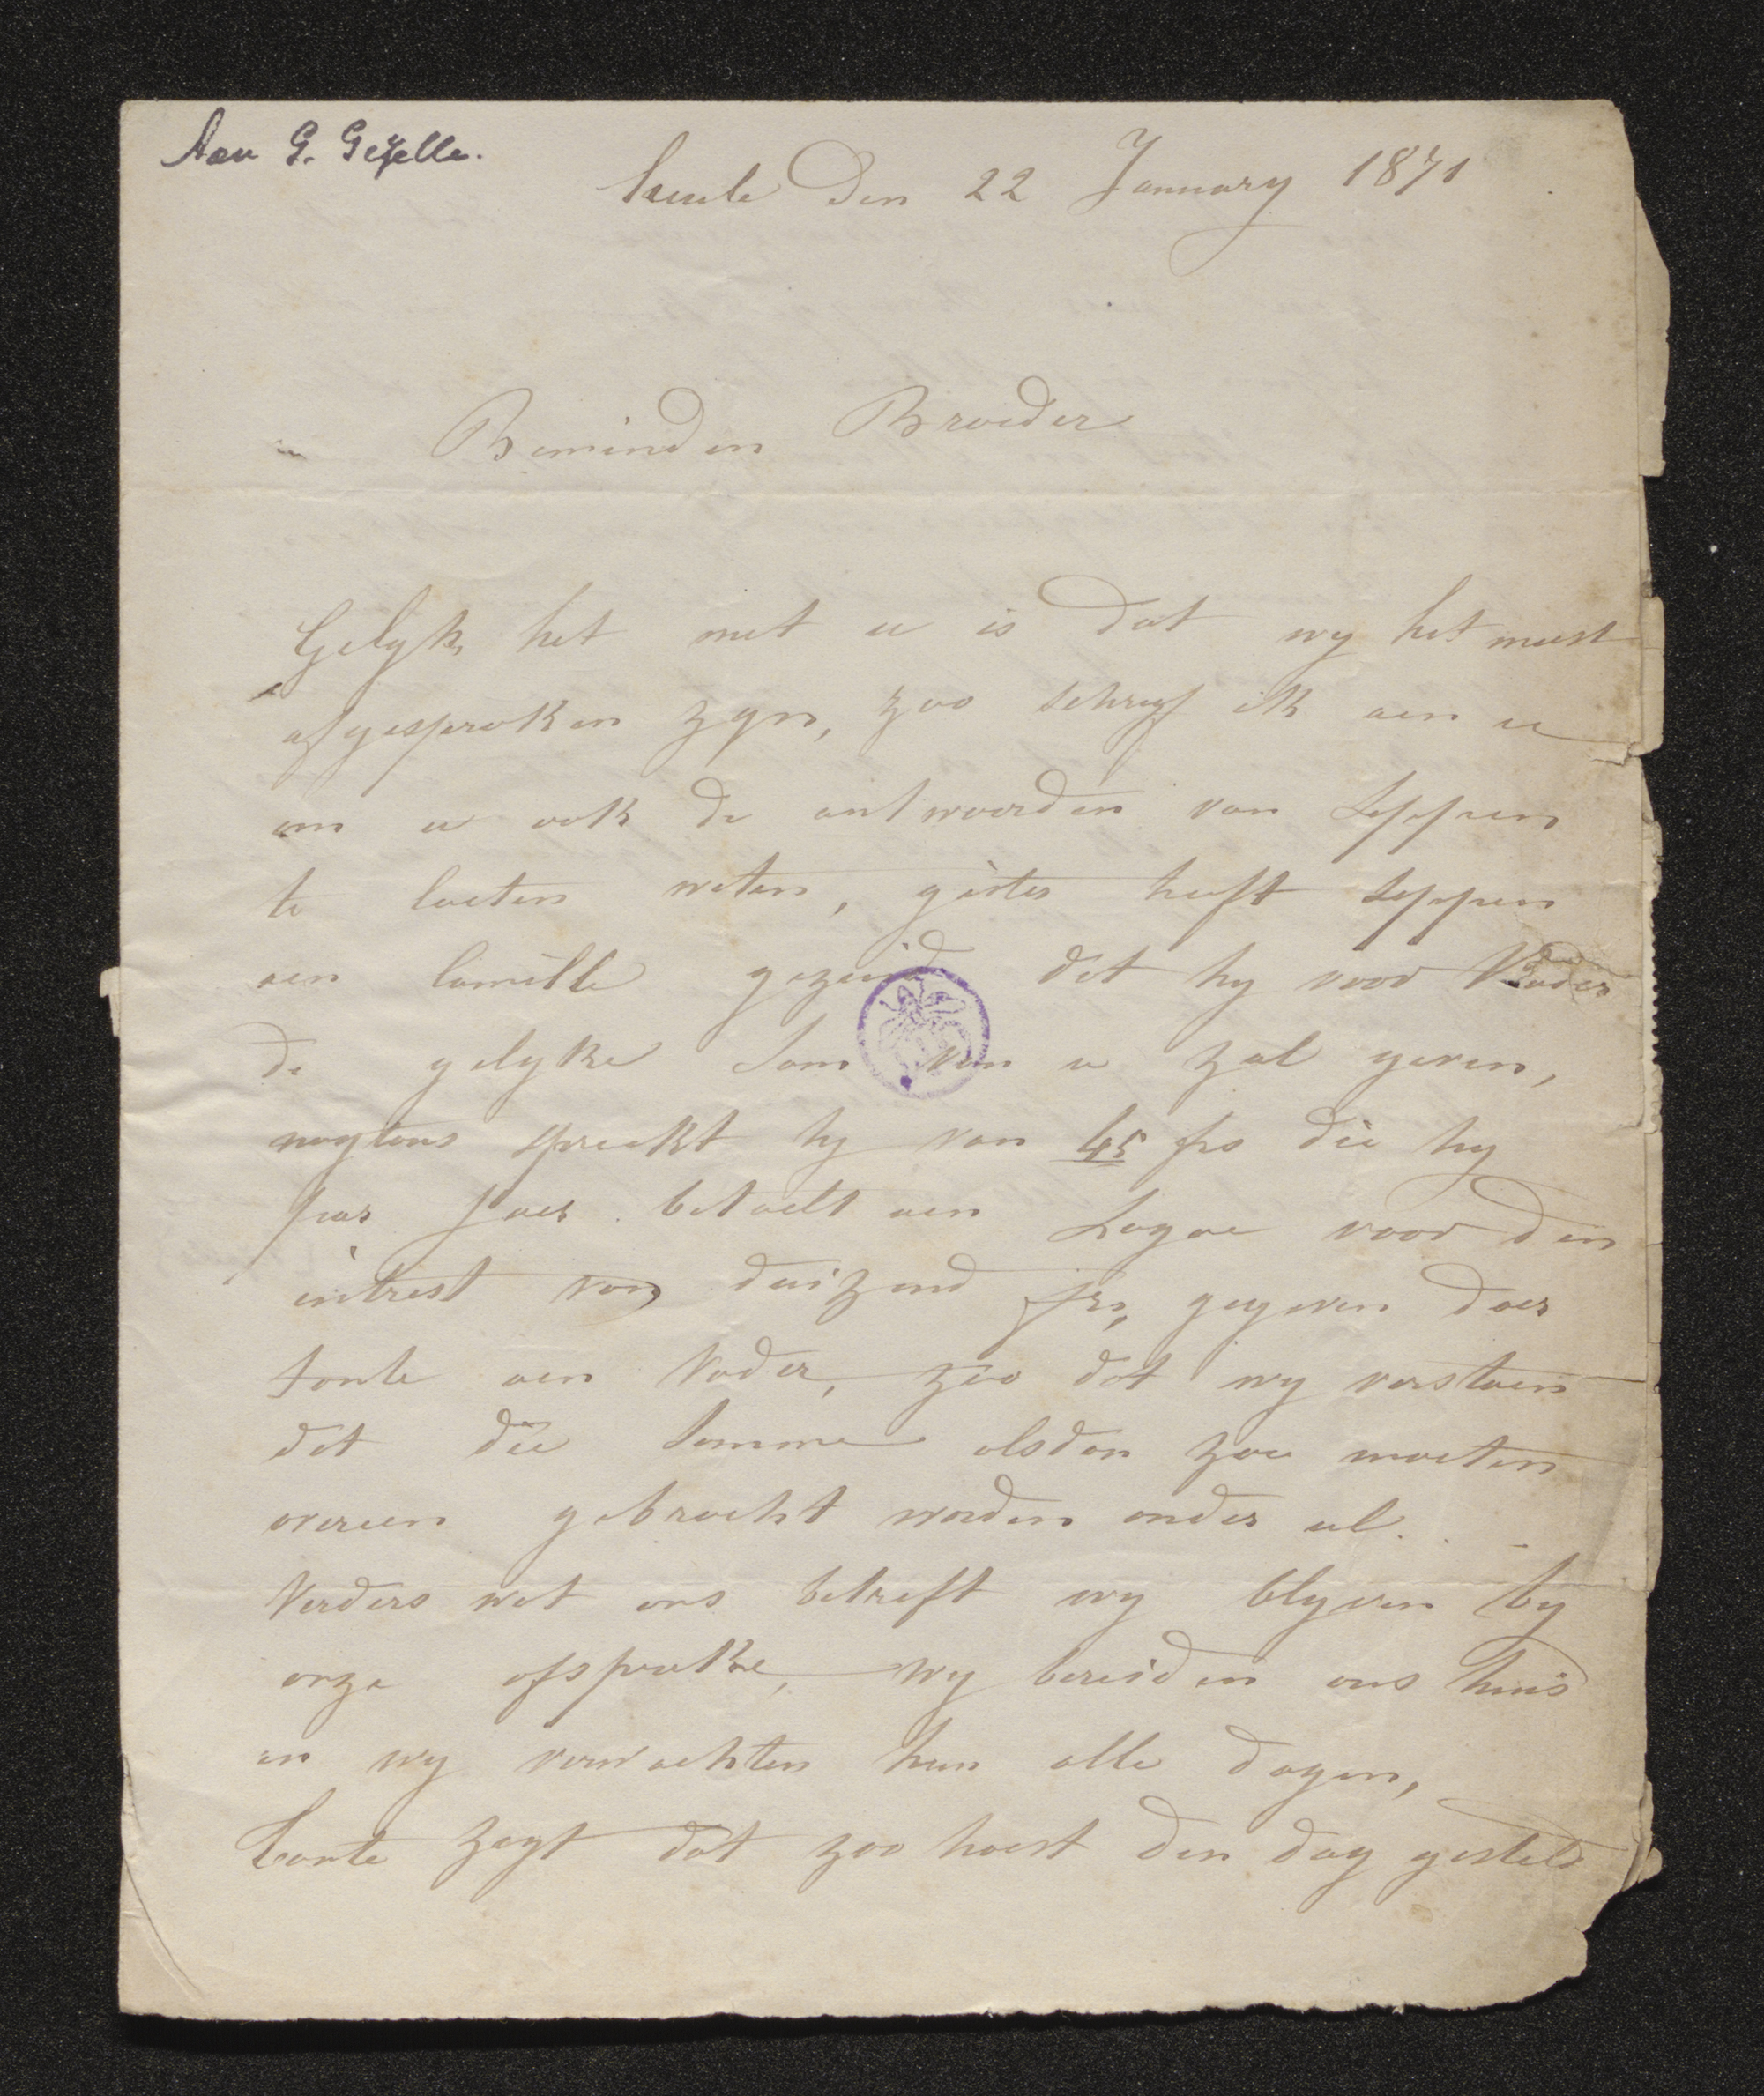 Aan G. Gezelle.
Heule Den 22 January 1871
Beminden Broeder
Gelyk het met u is dat wy het meest
afgesproken zyn, zoo schryf ik aen u
om u ook de antwoorden van Seppen
te laeten weten, gister heeft Seppen
aen Camille gezeid dat hy voor Vader
de gelyke som van u zal geven,
nogtans spreekt hy van 45 frs die hy
par Jaer betaelt aen Lagae voor den
intrest van duizend frs, gegeven door
tante aen Vader, zoo dat wy verstaen
dat die somme alsdan zou moeten
overeen gebracht worden onder ul.
Verders wat ons betreft wy blyven by
onze afspraeke, wy bereiden ons huis
en wy verwachten hun alle dagen,
tante zegt dat zoo haest den dag gesteld